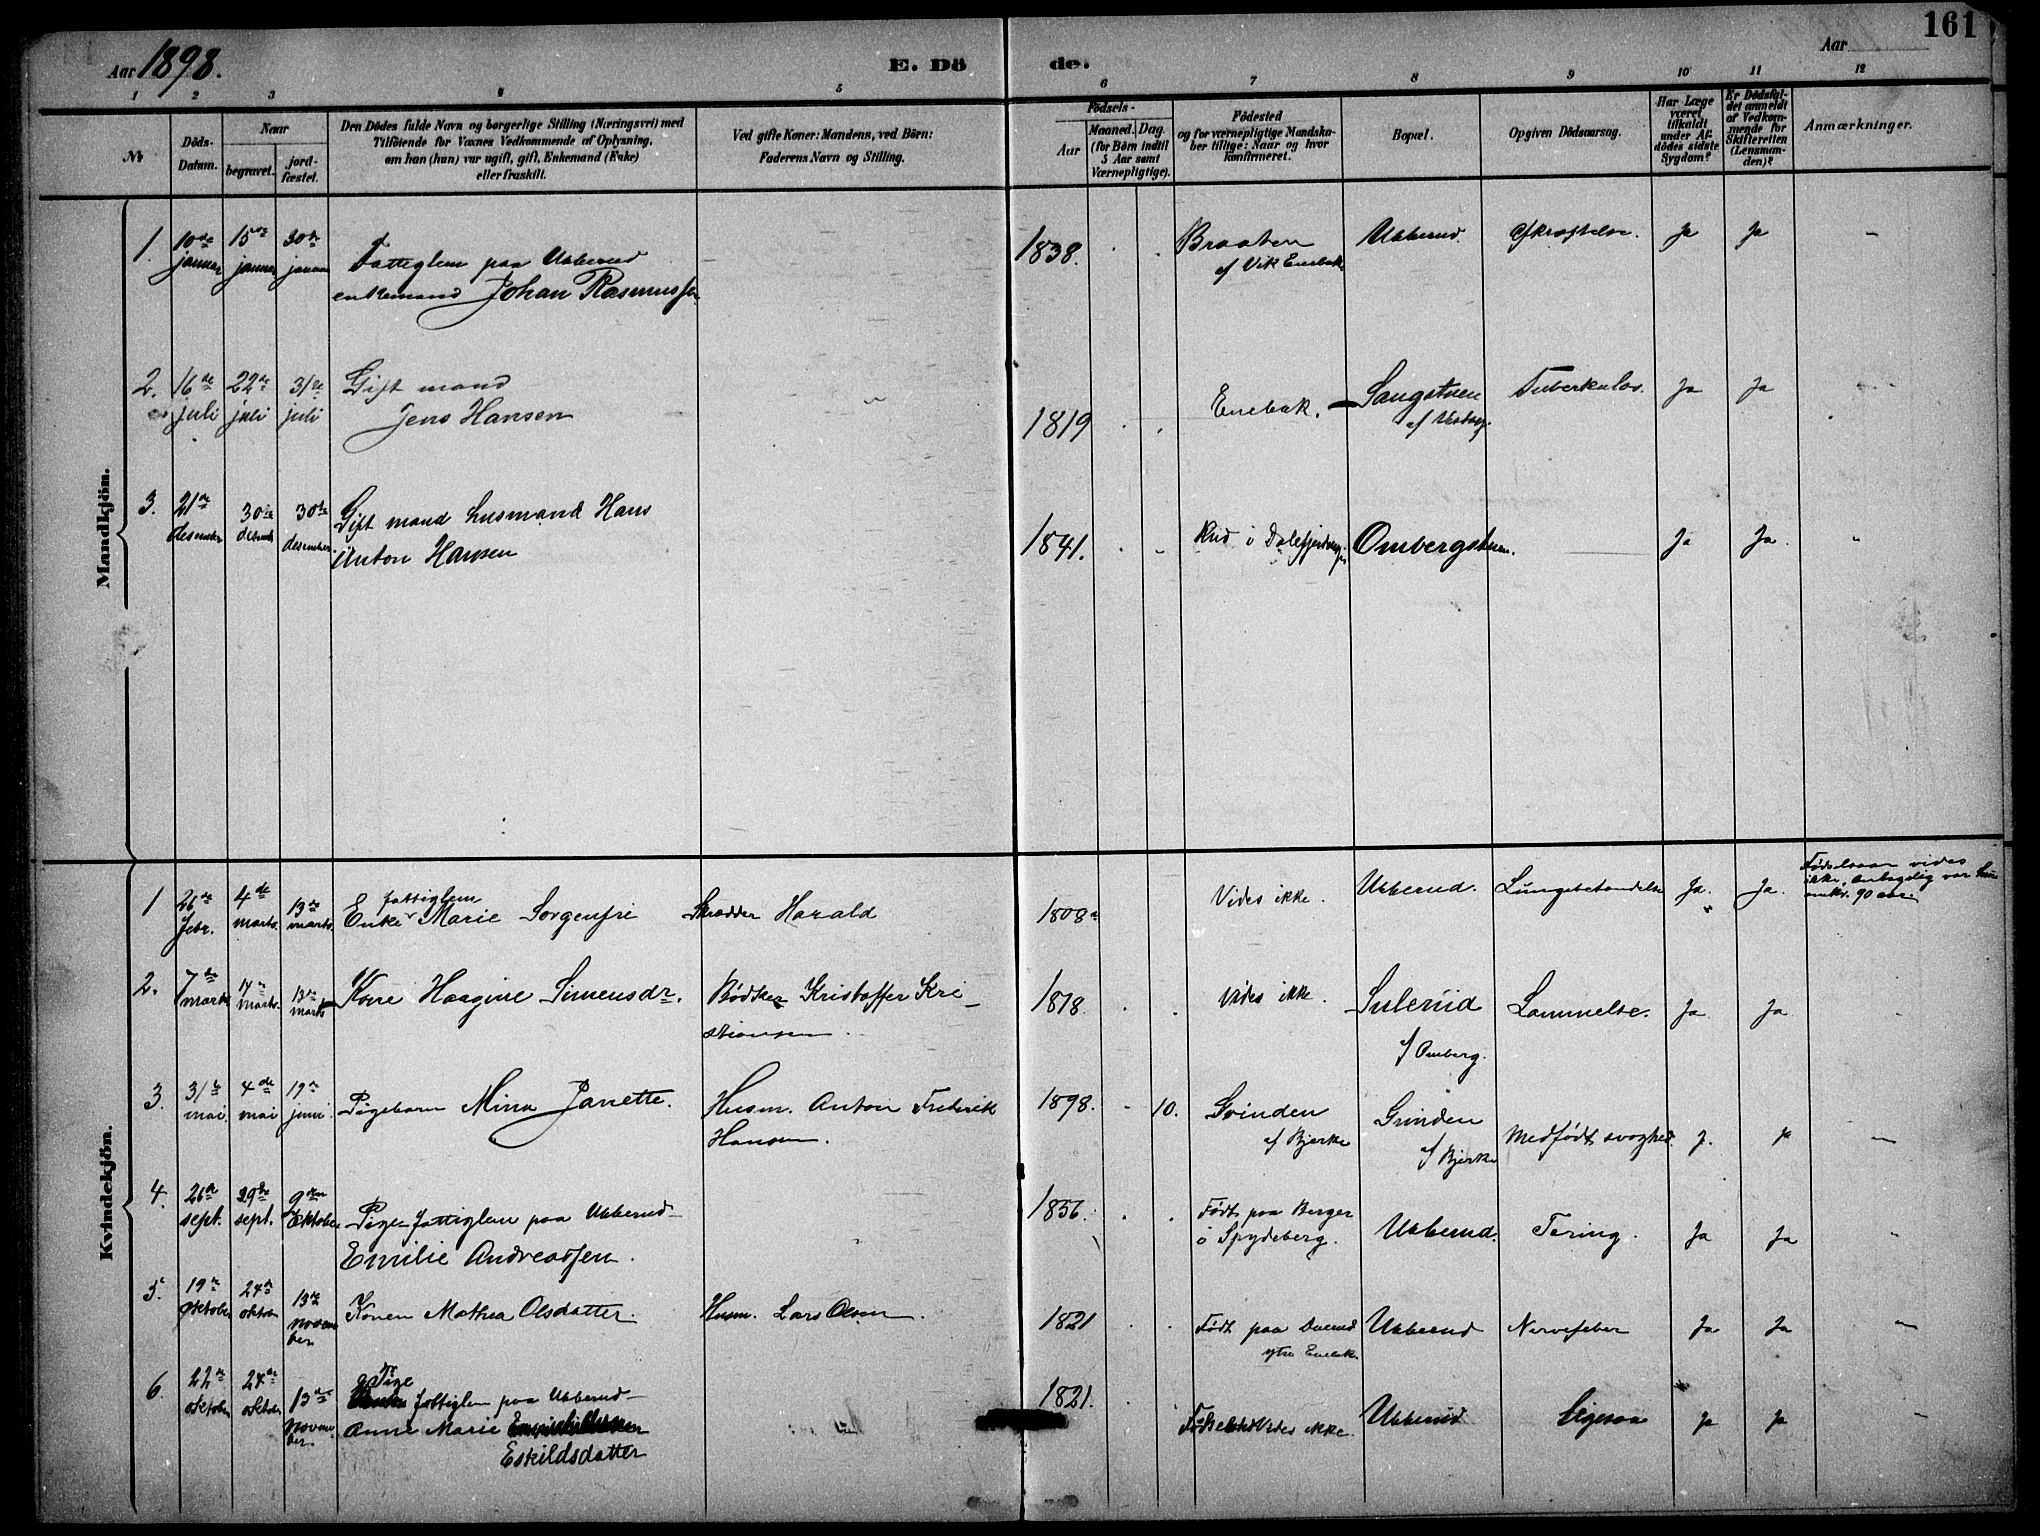 Aar 1898.
E. Dö de.
Aar
161
1 2 3 4 5 6 7 8 9 10 11 12
No
Döds-Datum.
Naar
begravet.
jord-fæstet.
Den Dödes fulde Navn og borgerlige Stilling (Næringsvei) med
Tilföiende for Voxnes Vedkommende af Oplysning,
om han (hun) var ugift, gift, Enkemand (Enke)
eller fraskilt.
Ved gifte Koner: Mandens, ved Börn:
Faderens Navn og Stilling.
Födsels-
Aar
Maaned. Dag.
(for Börn indtil
5 Aar samt
Værnepligtige).
Födested
og for værnepligtige Mandska-
ber tillige: Naar og hvor
konfirmeret.
Bopæl.
Opgiven Dödsaarsag.
Har Læge
været
tilkaldt
under Af-
dödes sidste
Sygdom?
Er Dödsfal-
det anmeldt
af Vedkom-
mende for
Skifteretten
(Lensman-
den)?
Anmærkninger.
Mandkjön.
1. 10de 15de 30te 1838. Braaten Ubberud. Afkræftelse. Ja Ja
januar januar januar Fattiglem paa Ubberud af Vik Enebak
enkemand Johan Rasmussen
2. 16de 22de 31te Gift mand Enebak. Saugstuen Tuberkulos. Ja Ja
juli juli juli Jens Hansen 1819 af
3. 21de 30te 30te Gift mand husmand Hans 1841. Rud i Ombergstuen. Ja Ja.
desember desemb desember. Anton Hansen
Kvindekjön.
1 26de 4de 13de fattiglem 1808 Vides ikke. Ubberud. Ja. Ja. Fødselsaar vides
Febr. marts. marts. Enke Marie Sorgenfri Skrædder Harald ikke, antagelig var hun
omkr. 90 aar
2. 7de 13de Kone Haagine Simensdr. Bødker Kristoffer Kri- 1818. Vides ikke. Sulerud Lammelse. Ja. Ja
marts marts. marts stiansen. af Omberg.
3. 31te 4de 19de Pigebarn Mina Janette. Husm. Anton Frederik 1898. 10. Grinden Grinden Medfødt svaghed. J. Ja
mai. mai juni. Hansen. af Bjerke af Bjerke
4. 26de 29de 9de 1856. Født paa Berger Ubberud. Tæring. Ja Ja
sept. sept. Oktober Pige fattiglem paa Ubberud i Spydeberg.
Emilie Andreassen.
5. 19de 24de 13de Konen Mathea Olsdatter. Husm. Lars Olsen. 1821 Født paa Ubberud Nervefeber Ja Ja
oktober oktober november ytre Enebak.
6. 22de 24de 13de Pige 1821.
oktober oktober november. fattiglem paa Ubberud Fødested Vides ikke. Ubberud Ligesaa Ja Ja
Anne Marie
Eskildsdatter